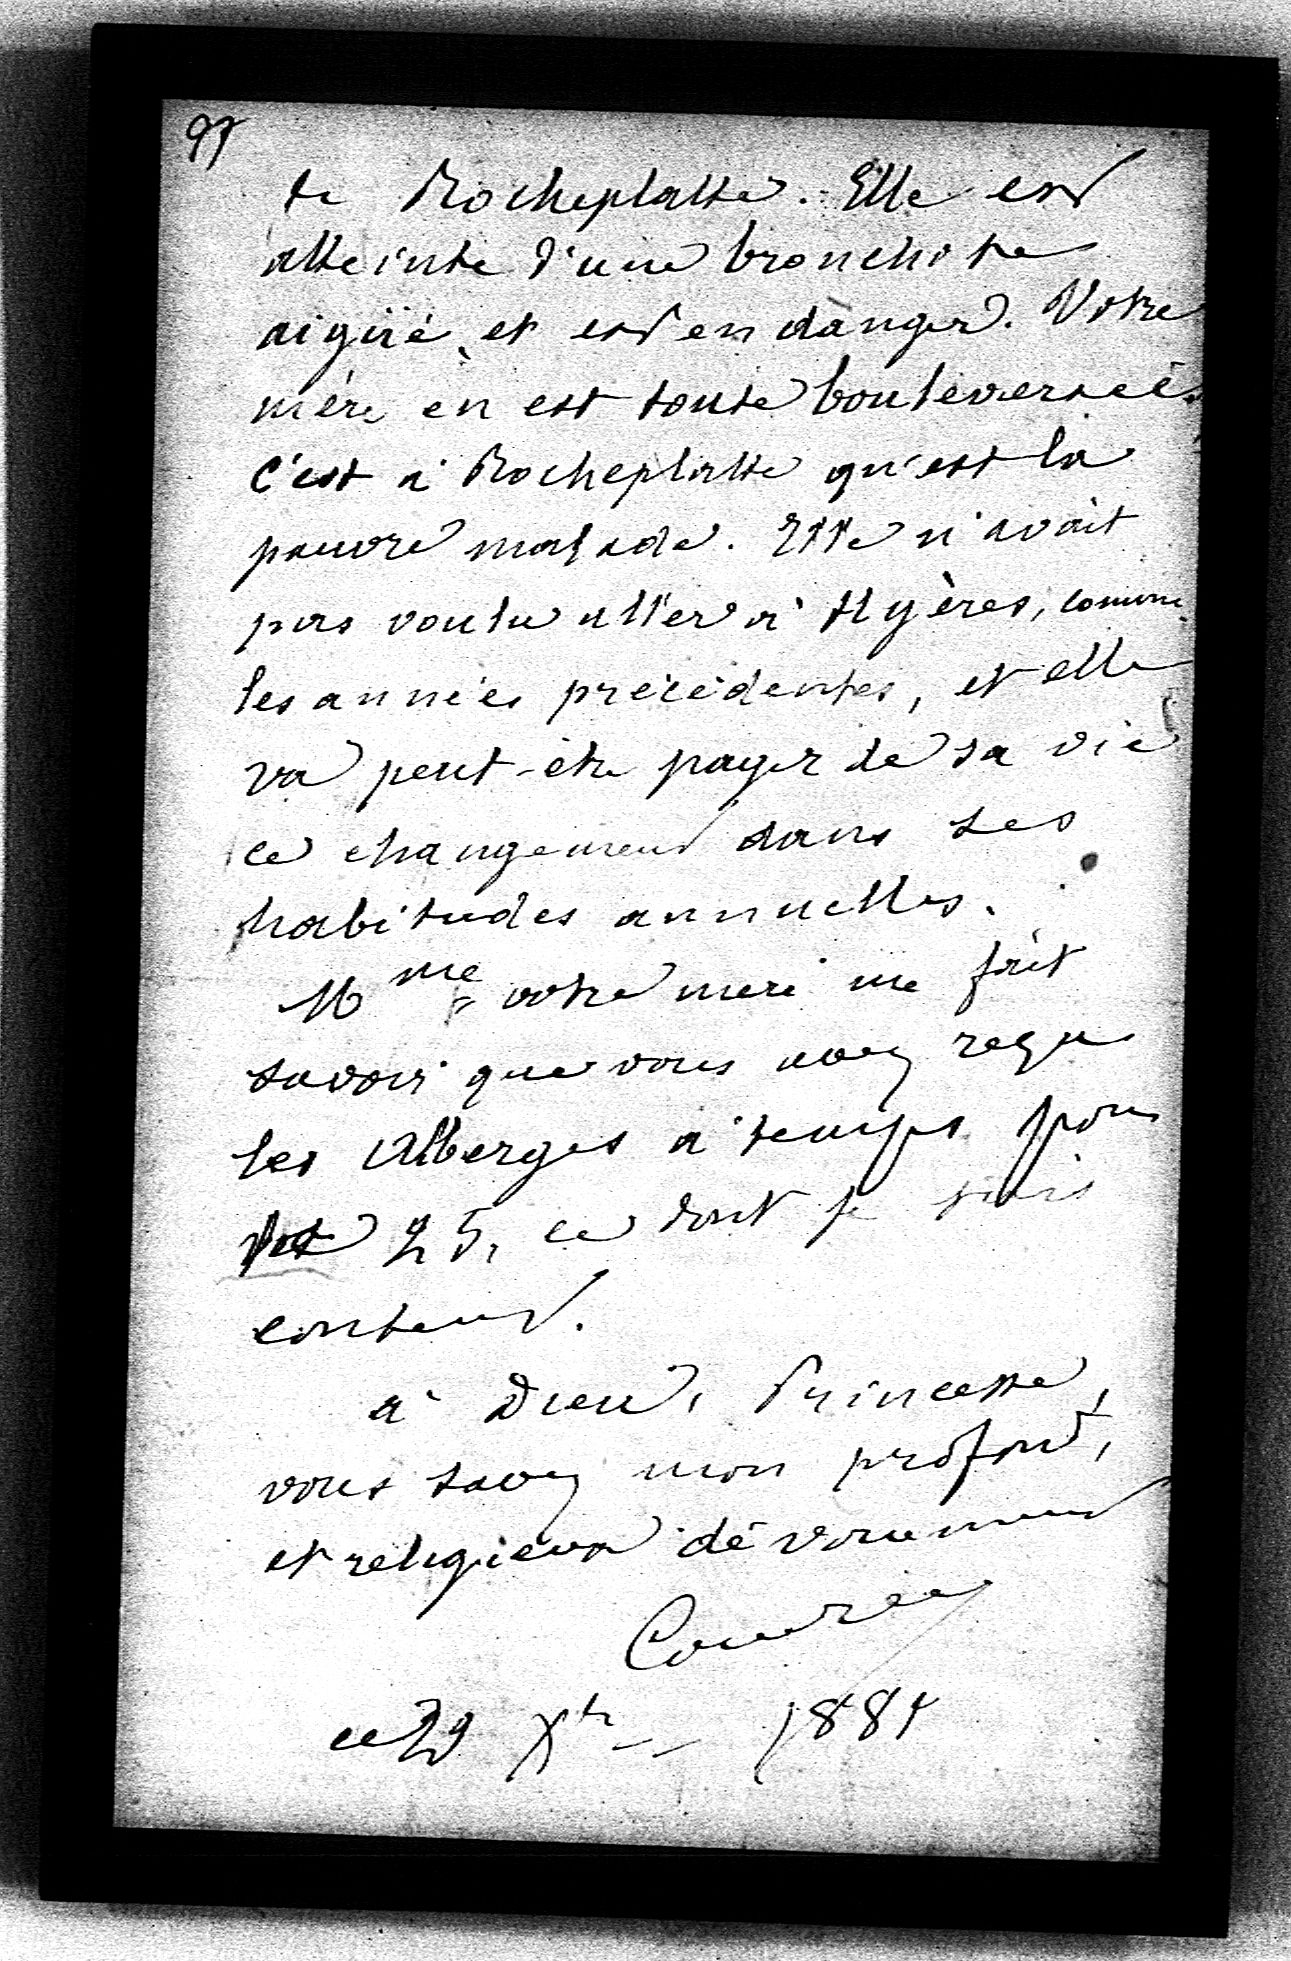 97
de Rocheplatte. Elle est
atteinte d'une bronchite
aigüe, et est en danger. Votre
mère en est toute bouleversée.
C'est à Rocheplatte qu'est la
pauvre malade. Elle n'avait
pas voulu aller à Hyères, comme
les années précédentes, et elle
va peut-être payer de sa vie
ce changement dans ses
habitudes annuelles.
Mme votre mère me fait
savoir que vous avez reçu
les Alberges à temps pour
le 25, ce dont je suis
content.
à Dieu, Princesse,
vous savez mon profond,
et religieux dévouement
ce 29 Xbre 1881